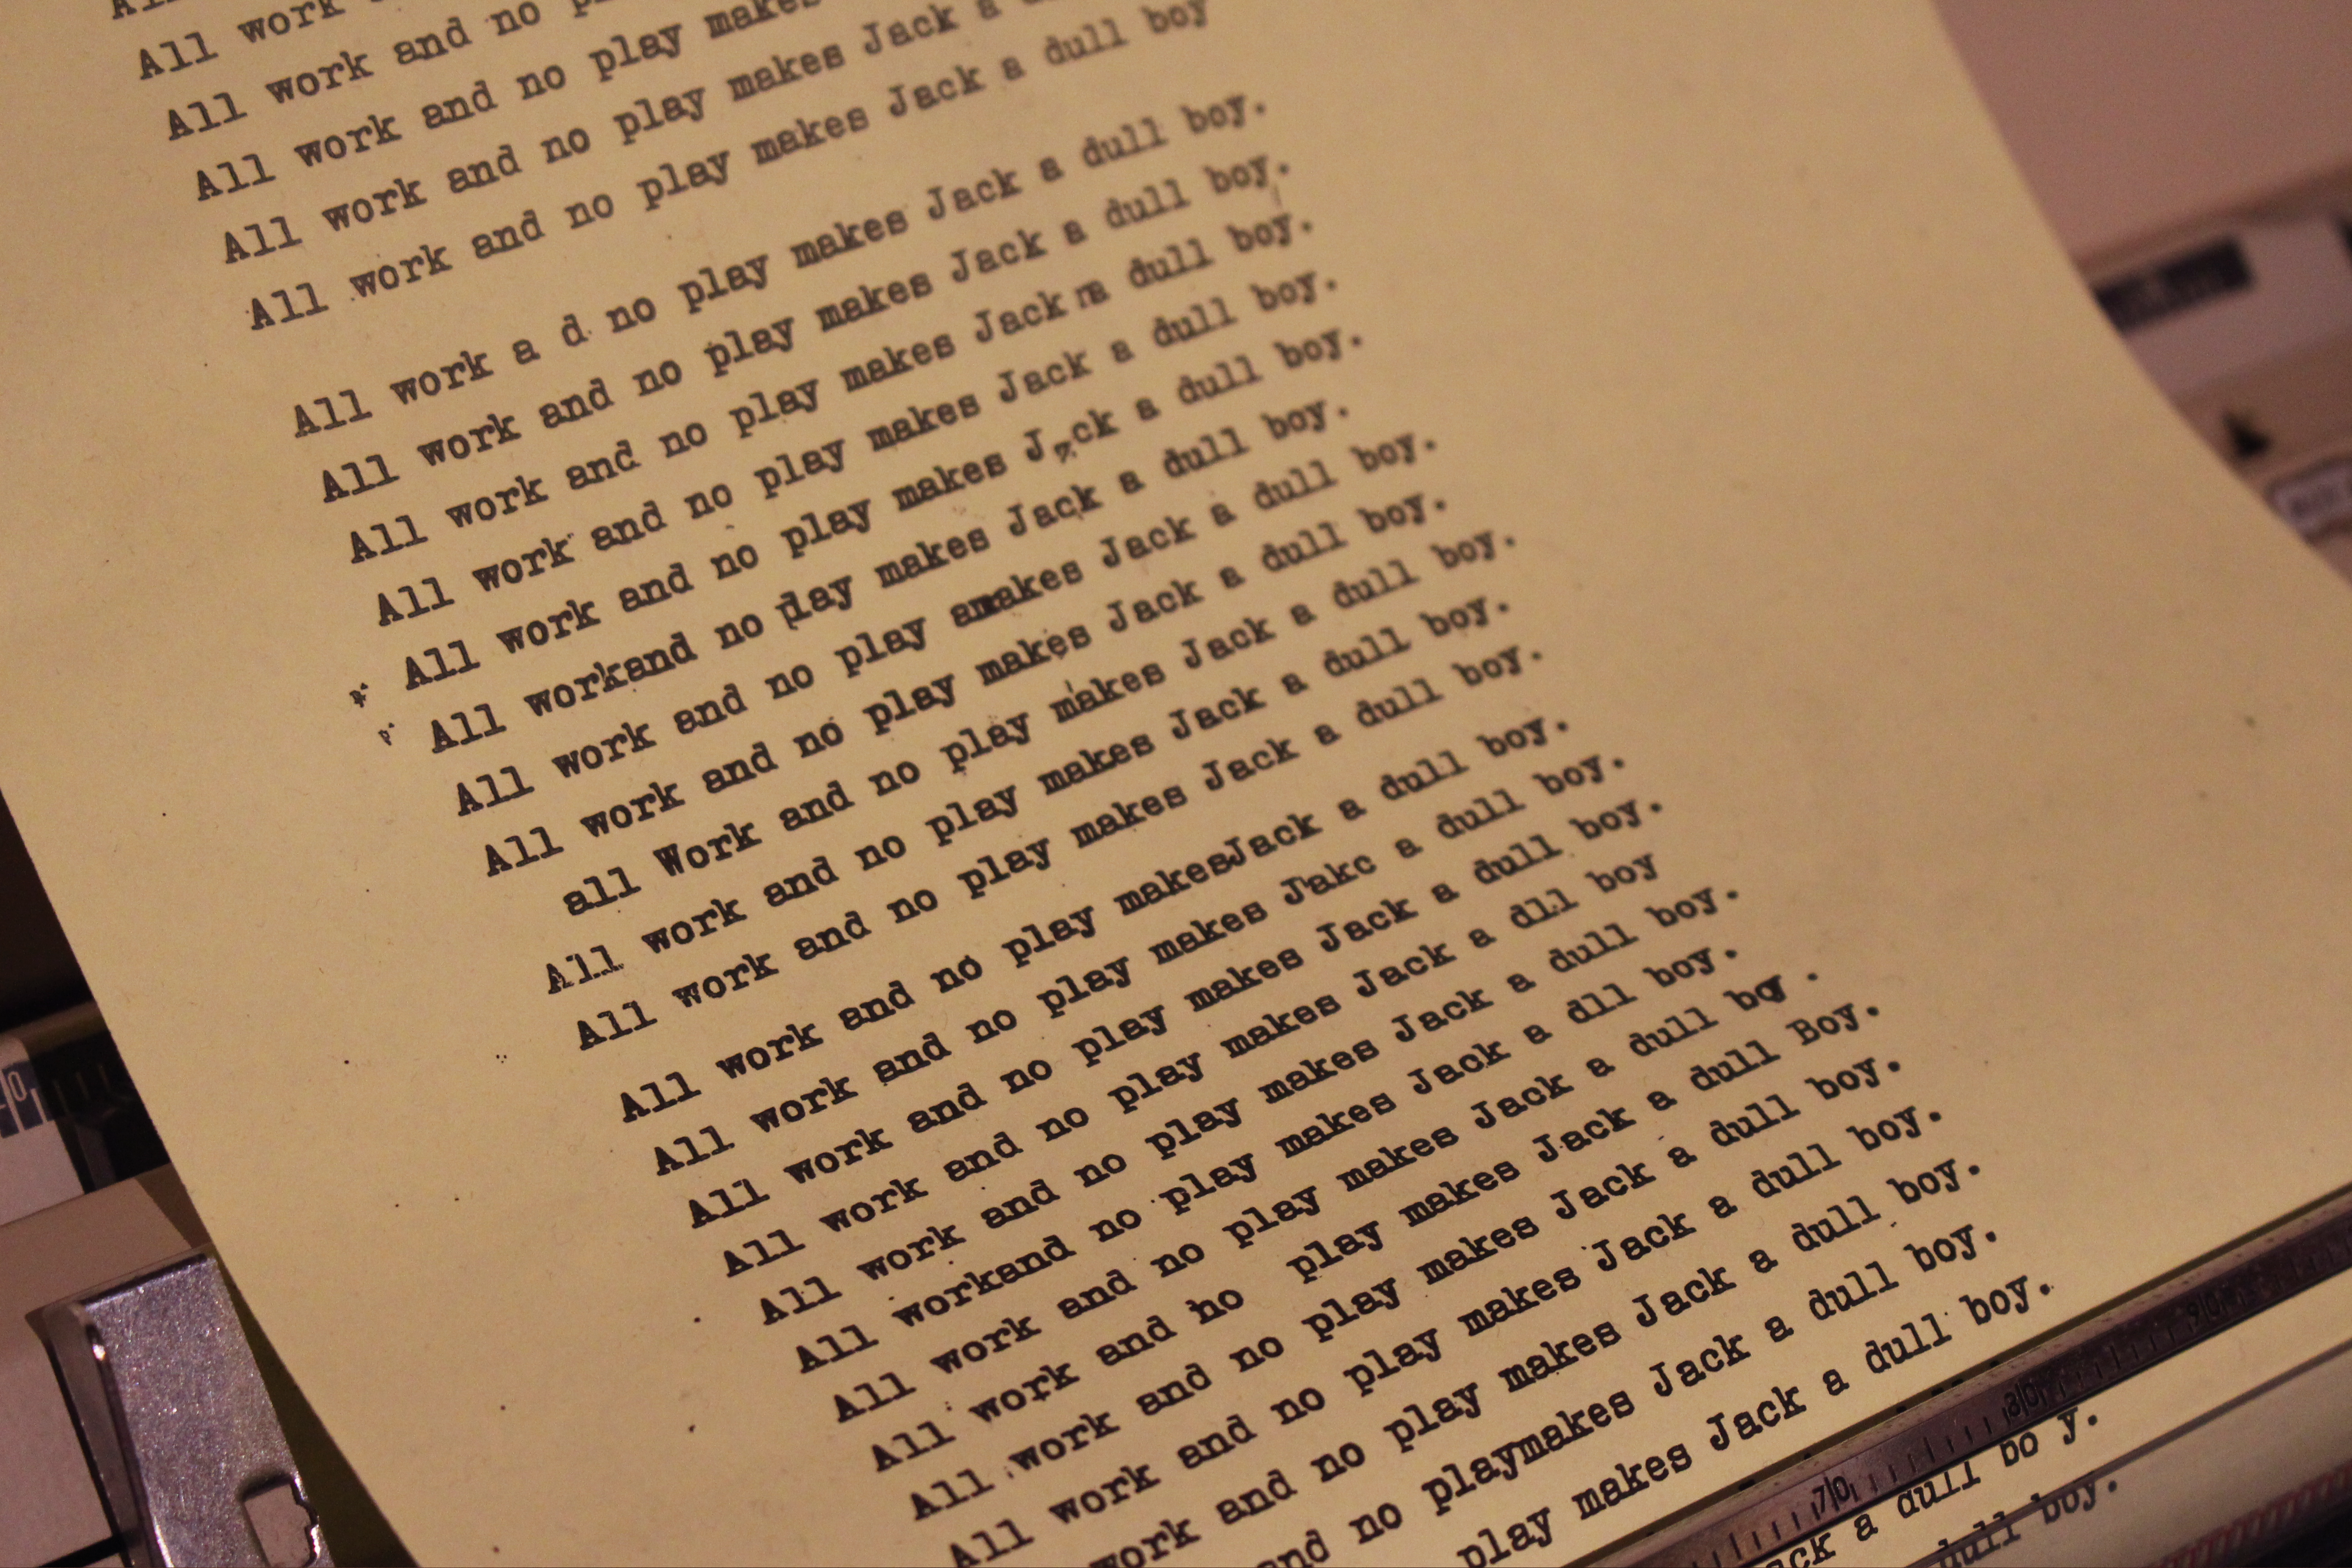 All work
All work and no
All work and no play makes
All work and no play makes Jack a
All work and no play makes Jack a dull boy
All work a d no play makes Jack a dull boy.
All work and no play makes Jack a dull boy.
All work and no play makes Jack a dull boy.
All work and no play makes Jack a dull boy.
All work and no play makes Jack a dull boy.
All workand no play makes Jack a dull boy.
All work and no play amakes Jack a dull boy.
All work and no play makes Jack a dull boy.
all Work and no play makes Jack a dull boy.
All work and no play makes Jack a dull boy.
All work and no play makes Jack a dull boy.
All work and no play makesJack a dull boy.
All work and no play makes Jakc a dull boy.
All work and no play makes Jack a dull boy.
All work and no play makes Jack a dll boy
All work and no play makes Jack a dull boy.
All workand no play makes Jack a dll boy.
All work and no play makes Jack a dull boy .
All work and ho play makes Jack a dull Boy.
All work and no play makes Jack a dull boy.
All work and no play makes Jack a dull boy.
work and no play makes Jack a dull boy.
and no playmakes Jack a dull boy.
play makes Jack a dull boy.
70 80 90
ack a dull bo y.
dull boy.